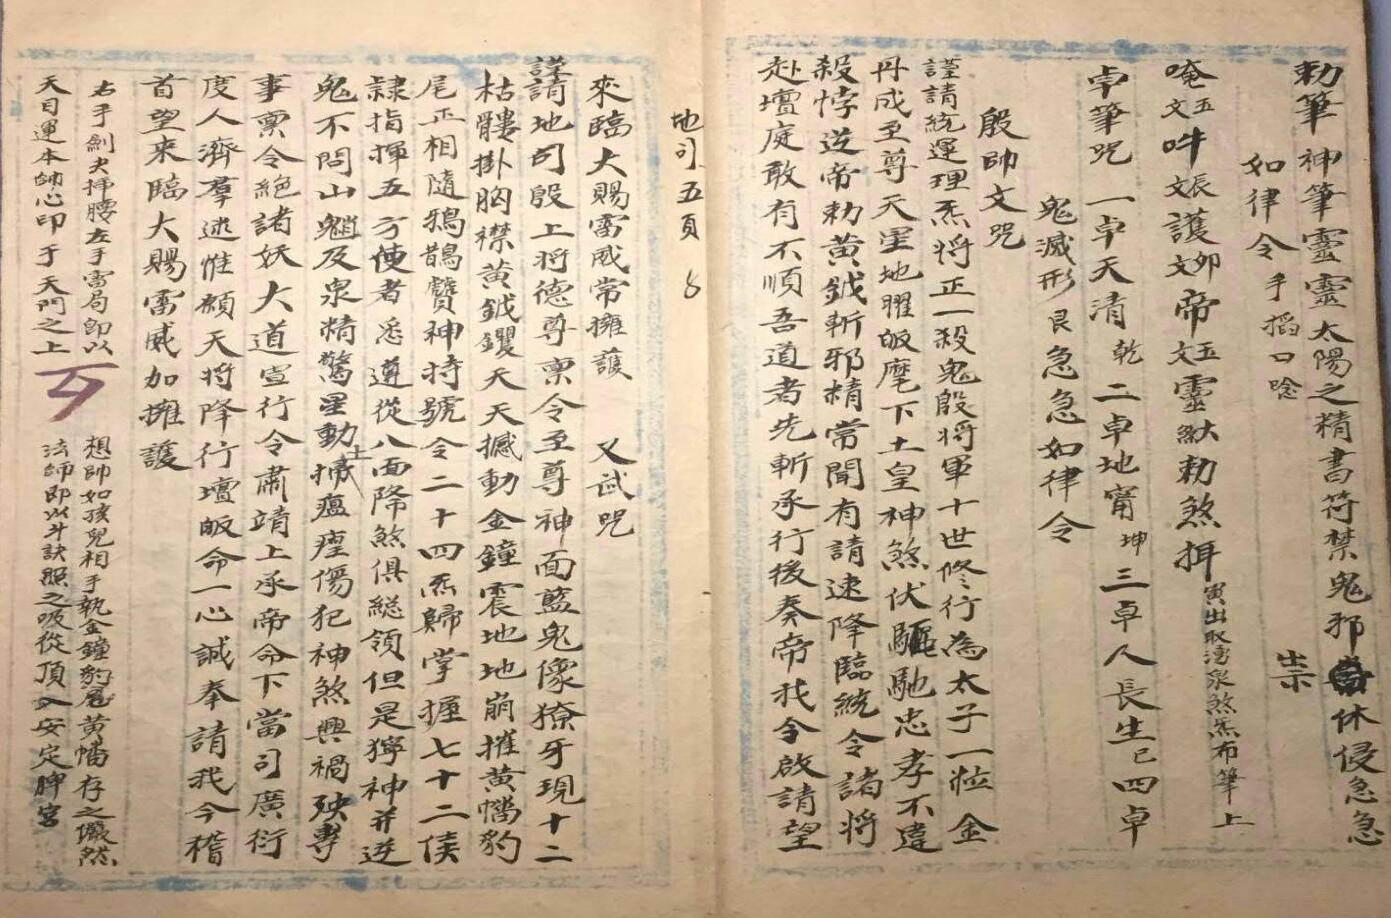 勅筆 神筆靈靈太陽之精書符禁鬼邪祟休侵急急
如律令 手搯口唸
唵文五吽文辰護文卯帝文玉靈猷勅煞揖寅出取湧泉煞炁布筆上
卓筆咒 一卓天清乾 二卓地甯坤 三卓人長生已四卓
鬼滅形艮 急急如律令
殷帥文咒
謹請統運理炁將正一殺鬼殷将軍十世修行為太子一粒金
丹成至尊天罡地曜皈麾下土皇神煞伏驅馳忠孝不違
殺悖逆帝勅黄鉞斬邪精常聞有請速降臨統令諸将
赴壇庭敢有不順吾道者先斬承行後奏帝我令啟請望
地司五頁
來臨大賜雷威常擁護 又試咒
謹請地司殷上将德尊禀令至尊神面藍鬼像獠牙現十二
枯髏掛胸襟黄鉞鑼天天撼動金鐘震地地崩摧黄幡豹
尾正相隨鴉鵲贊神持號令二十四炁歸掌握七十二侯
隷指揮五方使者悉遵從八面降煞俱総領但是獰神并逆
鬼不問山魈及泉精驚星動土捕瘟痘傷犯神煞興禍殃專
事禀令絕諸妖大道宣行令肅靖上承帝命下當司廣衍
度人濟羣迷惟願天将降行壇皈命一心誠奉請我今稽
首望來臨大賜雷威加擁護
右手劍夬揷腰左手雷局即以
天目運本帥心印于天門之上
想帥如孩兒相手執金鐘豹尾黄幡存之儼然
法師即以斗訣照之吸從頂入安定脾宮